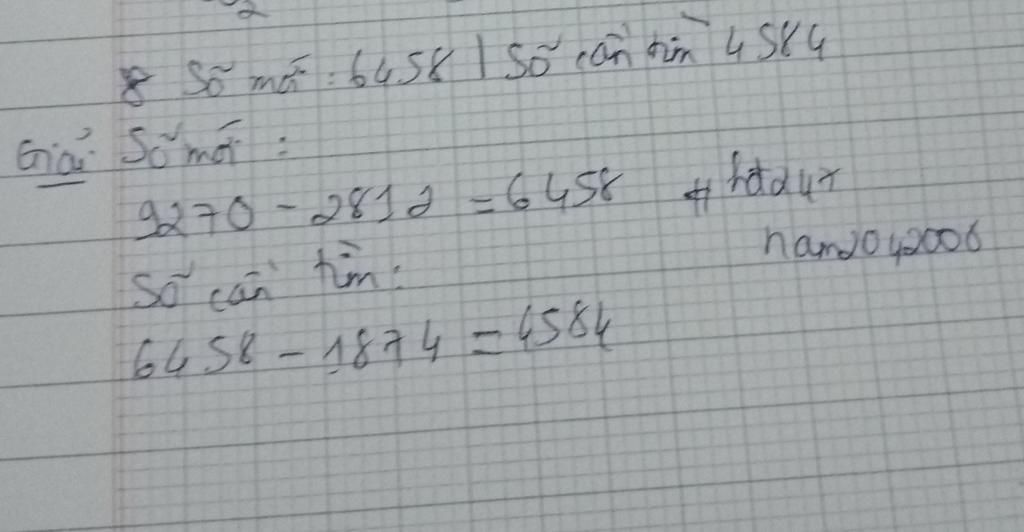 8 Số mới : 6458 | Số cần tìm 4584
Giải: Số mới :
9270 - 2812 = 6458 #
nam2042006
Số cần tìm:
6458 - 1874 = 4584